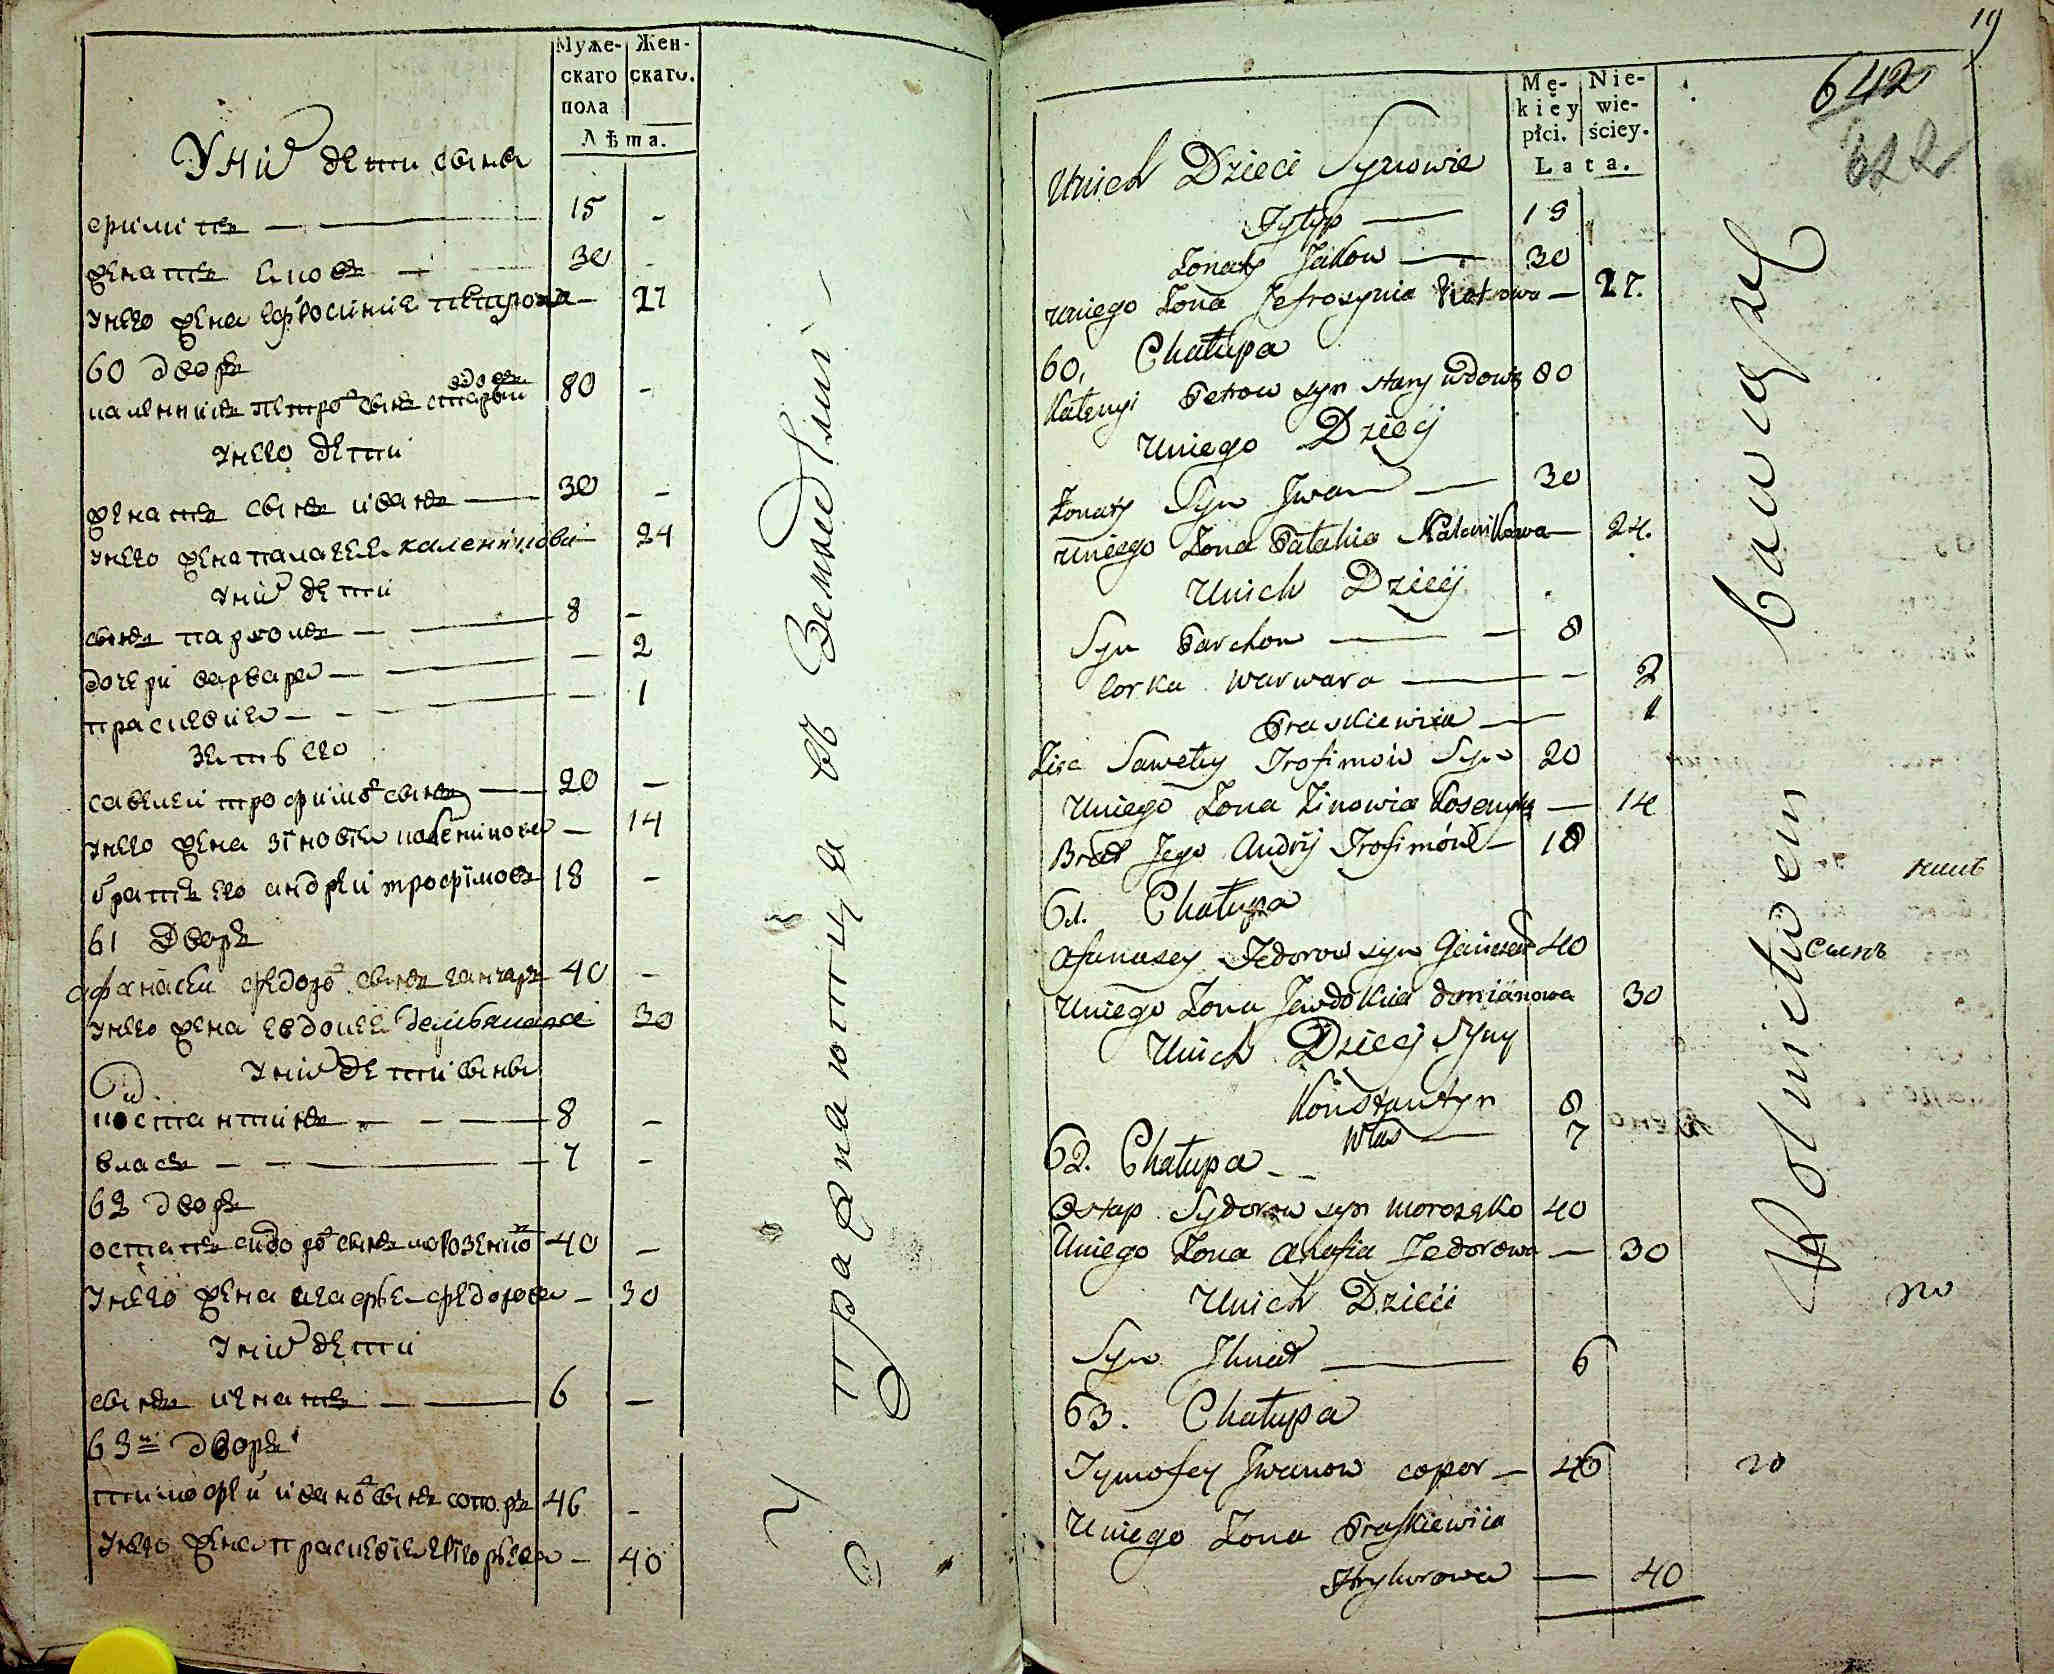 Муже-
скаго
пола
Жен-
скаго.
Лѣта.
У них дети сыны
филипъ — 15 -
женатъ яковъ — 30 -
у него жена ефросиния петрова — 27
60 дворъ
каленикъ петровъ сынъ старый вдовъ 80 -
у него дети
женатъ сынъ иванъ — 30 -
у него жена палагея каленикова — 24
у них дети
сынъ пархомъ — 8 -
дочери варвара — — 2
прасковия — — 1
зять его
савелей трофимовъ сынъ — 20 -
у него жена зіновія — 14
братъ его андрей трофимовъ 18 -
61 Дворъ
афанасей федоровъ сынъ ганчаръ 40 -
у него жена евдокея демьянова 30
у них дети сыны
костантинъ — 8 -
власъ — 7 -
62 дворъ
остапъ сидоровъ сынъ морозенко 40 -
у него жена агафья федорова — 30
у них дети
сынъ игнатъ — 6 -
63й дворъ
тимофей ивановъ сынъ сопоръ 46 -
у него жена прасковія григорьева — 40
Упражнаются въ Земледѣлии
19
642
622
Mę-
kiey
płci.
Nie-
wie-
ściey.
Lata.
Unich Dzieci Synowie
Fylyp — 15
Żonaty Jakow — 30
uniego Żona Jefrosynia Piotrowa — 27.
60. Chałupa
Kałenyi Petrow syn stary wdowy 80
Uniego Dziecij
Żonaty Syn Jwan — 30
uniego Żona Pałahia Kalenikowa — 24.
Unich Dziecij
Syn Parchom — 8
Corka Warwara — 2
Praskiewiia — 1
Zięc Sawełey Trofimow Syn 20
Uniego Żona Zinowia — 14
Brat Jego Andrij Trofimów — 18
61. Chałupa
Afanasey Fedorow syn Ganczar 40
Uniego Żona Jewdokiia demianowa 30
Unich Dziecij Syny
Konstantyn 8
Włas — 7
62. Chałupa
Ostap Sydorow syn morozęko 40
Uniego Żona Ahafia Fedorowa — 30
Unich Dziecii
Syn Jhnat — 6
63. Chałupa
Tymofey Jwanow copor — 46
Uniego Żona Praskiewiia
Hryhorowa — 40
Rolnictwem bawią się